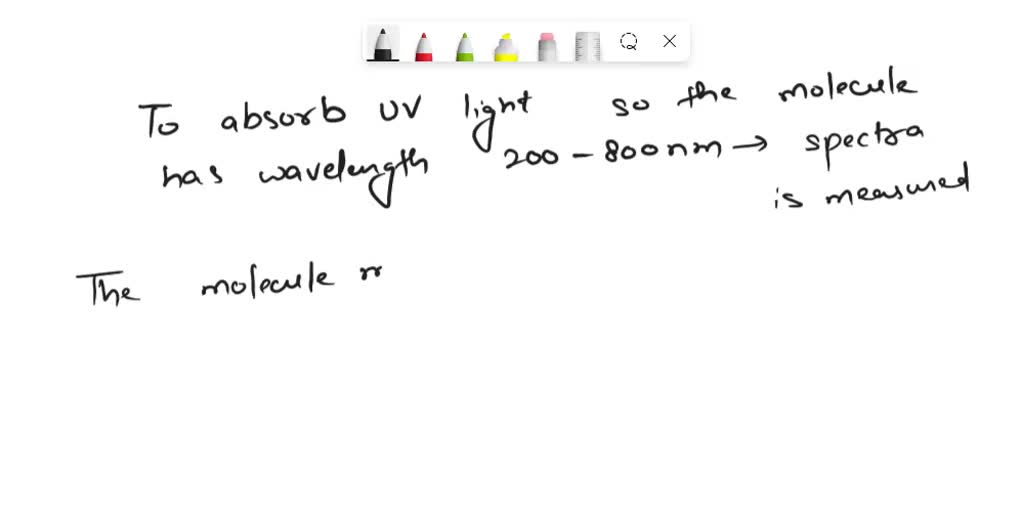 To absorb UV light so the molecule
has wavelength 200 - 800nm → spectra
is measured
The molecule